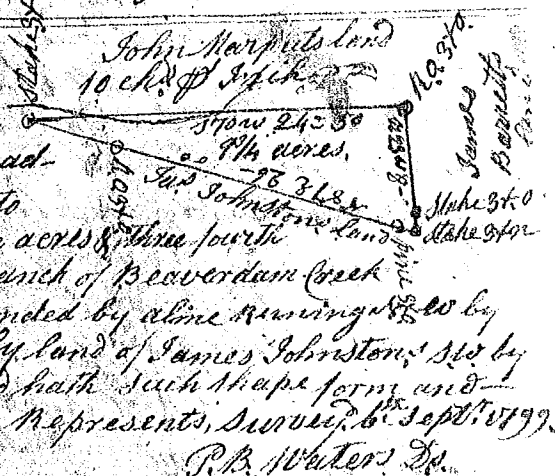 Stake 3x
John Marputs land
10 chs pr Inch
R.O. 3xo.
James
Barretts
line
S70W 24=50
9¾ acres.
Jas Johnstons land
Stake 3xo
Stake 3xn
pine 3x
ad-
to
acres & three fourth
anch of Beaverdam Creek
nded by a line runing by
y land of James Johnston: SW by
hath such shape form and-
Represents, Survey.d 6th Sept.r 1799.
P.B. Waters Ds.